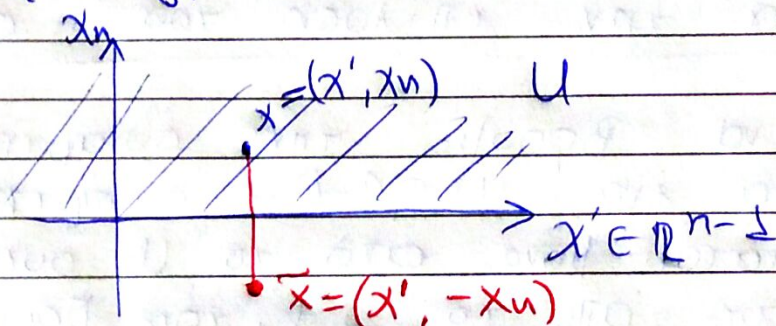 xn
x=(x', xn) U
x' ∈ ℝ^{n-1}
x̃=(x', -xn)